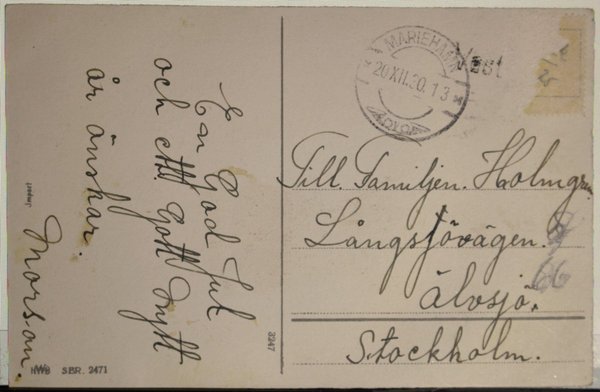 En God Jul
och ett Gott Nytt
år önskar.
Morson.
Import
SBR. 2471
3247
MARIEHAMN
20.XII.30.13
Till. Familjen. Holmgren
Långsjövägen.
66
Älvsjö.
Stockholm.